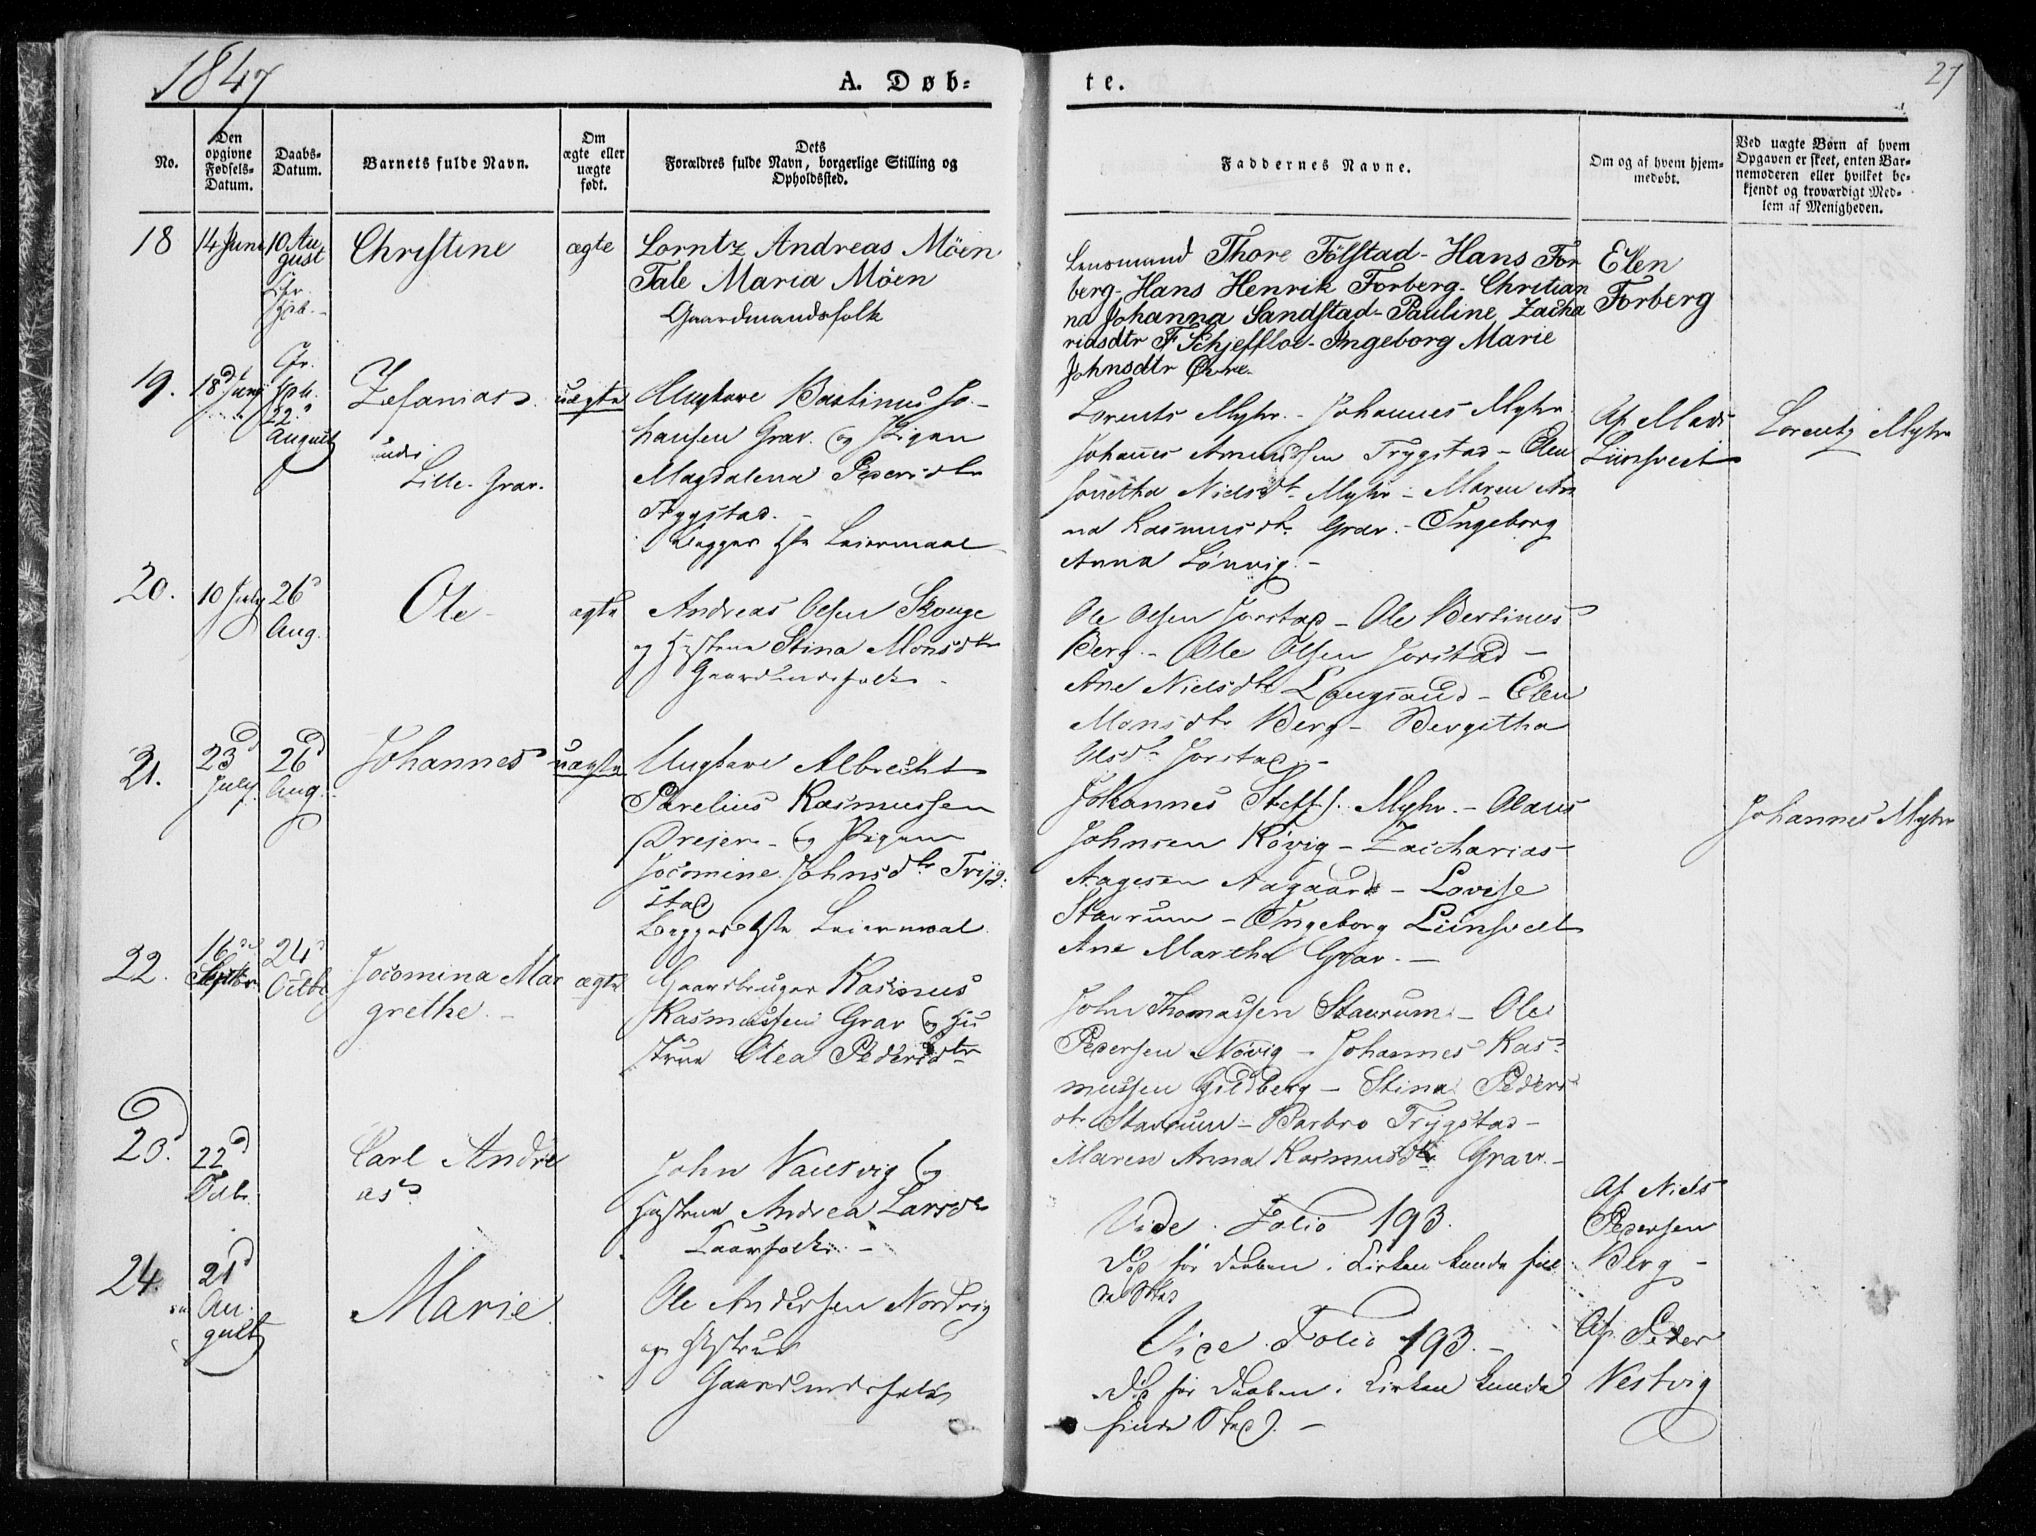 1847
A. Døb=
te.
27
No.
Den
opgivne
Fødsels-
Datum.
Daabs-
Datum.
Barnets fulde Navn.
Om
ægte eller
uægte
født.
Dets
Forældres fulde Navn, borgerlige Stilling og
Opholdssted.
Faddernes Navne.
Om og af hvem hjem-
medøbt.
Ved uægte Børn af hvem
Opgaven er skeet, enten Bar-
nemoderen eller hvilket be-
kjendt og troværdigt Med-
lem af Menigheden.
18
14 Juni
10 Au
gust
Christine
ægte
Lorntz Andreas Möen
Tale Maria Möen
Gaardmandsfolk
Lensmand Thore Fölstad - Hans For
berg - Hans Henrik Forberg - Chritian
na Johanna Sandstad - Pauline Zacha
riasdtr F Schjefloe - Ingeborg Marie
Johnsdtr Øvre
Elen
Forberg
19.
18 Juny
22
August
Zefanias
under
Lille Grav.
uægte
Ungkare Bastinus Jo-
hansen Grav. og Pigen
Magdalena Pedersdtr
Trygstad.
Begges 1ste Leiermaal
Lorents Myhr - Johannes Myhr
Johannes Amundsen Trygstad - Elen
Nielsdtr Myhr - Maren An
na Rasmusdtr Grav. - Ingeborg
Anna Lönvig -
Af Mads
Liinsveet
Lorentz Myhr
20.
10 July
26
Aug.
Ole
ægte
Andreas Olsen Skouge
og Hustrue Stina Monsdtr
Gaardmdsfolk
Ole Olsen Jorstad - Ole Bertinus
Berg - Ole Olsen Jorstad -
Ane Nielsdtr Langsand - Elen
Monsdtr Berg - Bergitha
Olsdtr Jorstad -
21.
23d
July
26d
Aug.
Johannes
uægte
Ungkare Albrecht
Parelius Rasmussen
Drejer - og Pigen
Jocomine Johnsdtr Tryg-
stad
Begges 1ste Leiermaal
Johannes Steffs. Myhr. - Olaus
Johnsen Rövig - Zacharias
Aagesen Aagaard - Lovise
Stavrum - Ingeborg Liinsveet
Ane Martha Grav. -
Johannes Myhr
22.
16
Septbr
24
Octbr
Jocomina Mar
grethe. -
ægte
Gaardbruger Rasmus
Rasmussen Grav og Hu
strue Olea Pedersdtr
John Thomassen Stavrum - Ole
Pedersen Növig - Johannes Ras-
mussen Gildberg - Stina Peders
dtr Stavrum - Barbro Trygstad -
Maren Anna Rasmusdtr Grav. -
23.
22d
Carl Andre
as
John Vansvig og
Hustrue Andrea Larsdtr
Vide Folio 193.
Död för Daaben i Kirken kunde fin
de Sted
Af Niels
Pedersen
Berg -
24.
21d
Au
gust
Marie
Ole Andersen Nordvig
og Hustrue
Gaardmdsfolk
Vide Folio 193. -
Död för Daaben i Kirken kunde
finde Sted. -
Af Peder
Vestvig